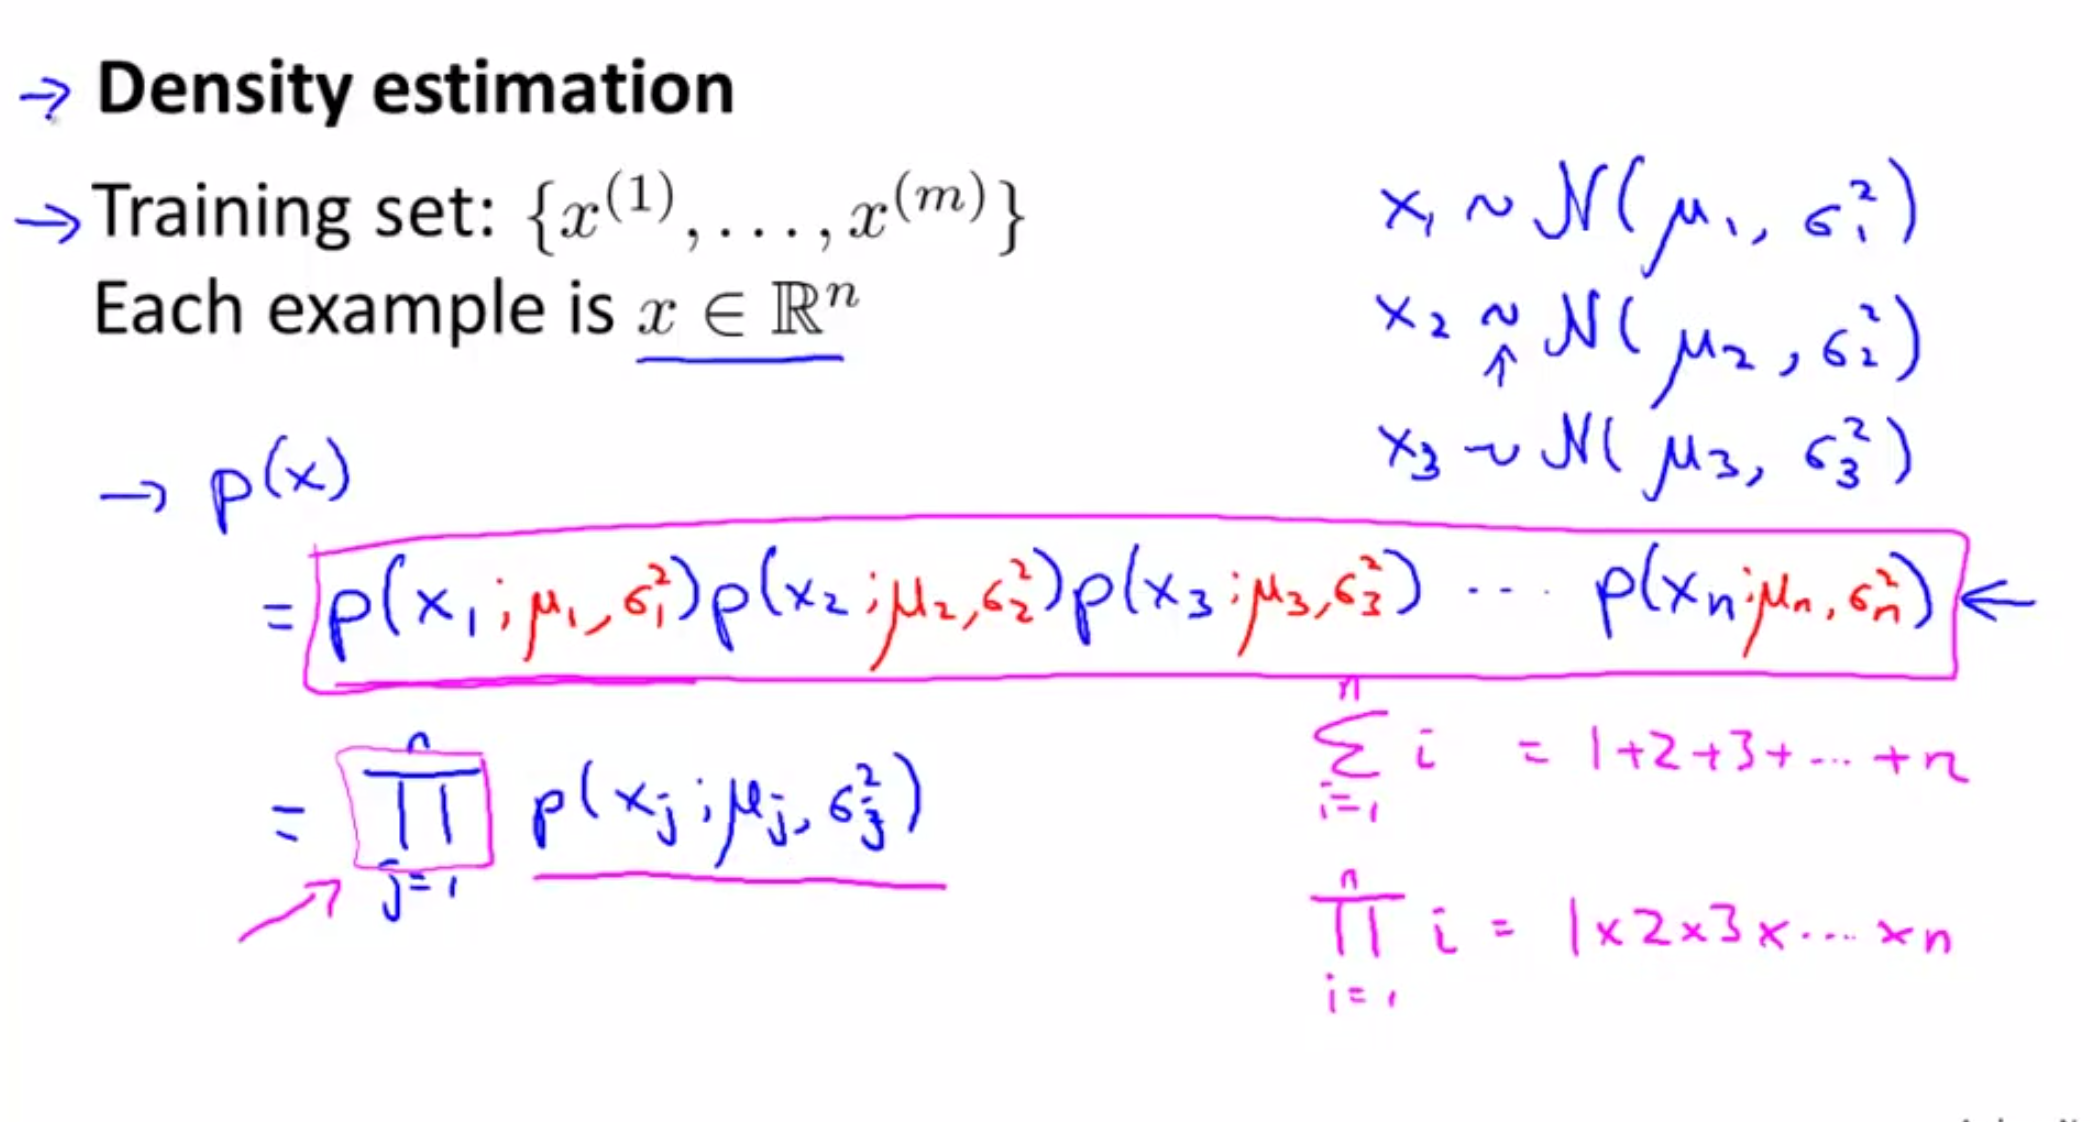 → Density estimation
→ Training set: {x^(1), . . . , x^(m)}
Each example is x ∈ ℝ^n
x₁ ~ N(μ₁, σ₁²)
x₂ ~ N(μ₂, σ₂²)
↑
x₃ ~ N(μ₃, σ₃²)
→ p(x)
= p(x₁; μ₁, σ₁²) p(x₂; μ₂, σ₂²) p(x₃; μ₃, σ₃²) ... p(xₙ; μₙ, σₙ²) ←
= ∏_{j=1}^{n} p(xⱼ; μⱼ, σⱼ²)
∑_{i=1}^{n} i = 1+2+3+...+n
∏_{i=1}^{n} i = 1×2×3×...×n